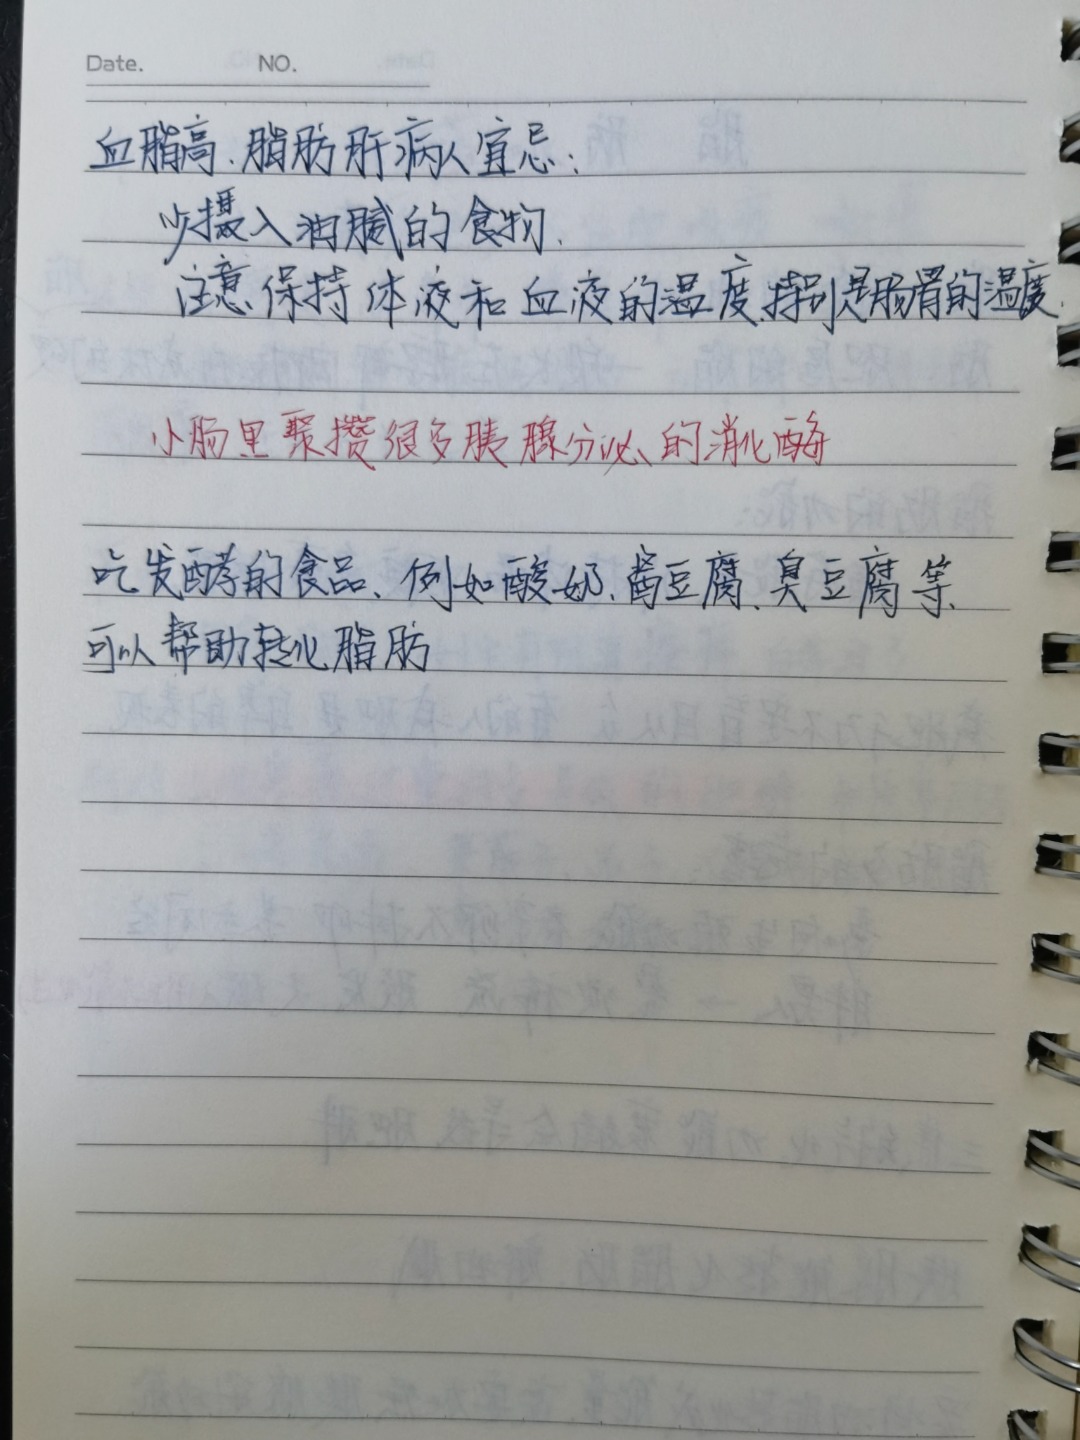 Date. NO.
血脂高、脂肪肝病人宜忌：
少摄入油腻的食物、
注意保持体液和血液的温度、特别是肠胃的温度、
小肠里聚攒很多胰腺分泌的消化酶
吃发酵的食品、例如酸奶、酱豆腐、臭豆腐等、
可以帮助转化脂肪